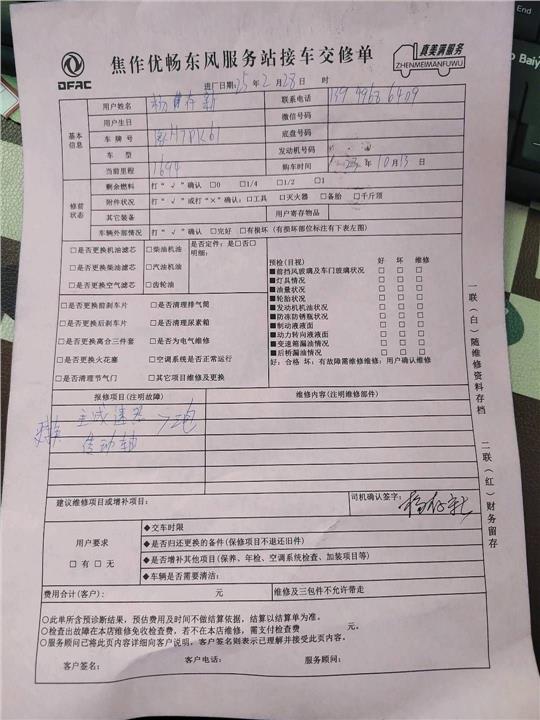 DFAC
焦作优畅东风服务站接车交修单
真美满服务
ZHENMEIMANFUWU
进厂日期:25年2月28日 时
基本信息
用户姓名
联系电话
用户生日
微信号码
车牌号
底盘号码
车型
发动机号码
当前里程 1694
购车时间 年10月13日
修前状态
剩余燃料 打“√”确认 □0 □1/4 □1/2 □1
附件状况 打“√”或打“×”确认:□工具 □灭火器 □备胎 □千斤顶
其它装备
用户寄存物品
车辆外部情况 打“√”确认 □完好 □有损坏(有损坏部位标注有下表左图)
□是否更换机油滤芯 □柴油机油
□是否更换柴油滤芯 □汽油机油
□是否更换空气滤芯 □齿轮油
是否定件:是□否□
明细:
□是否更换前刹车片 □是否清理排气筒
□是否更换后刹车片 □是否清理尿素箱
□是否更换离合三件套 □是否为电气维修
□是否更换火花塞 □空调系统是否正常运行
□是否清理节气门 □其它项目维修及更换
预检(目视) 好 坏 维修
■前挡风玻璃及车门玻璃状况 □ □ □
■灯具情况 □ □ □
■油量状况 □ □ □
■轮胎状况 □ □ □
■发动机机油状况 □ □ □
■防冻防锈瓶状况 □ □ □
■制动液液面 □ □ □
■动力转向液液面 □ □ □
■变速箱漏油情况 □ □ □
■后桥漏油情况 □ □ □
好:合格 坏:有故障需维修维修:用户确认维修
报修项目(注明故障)
维修内容(注明维修部件)
主减速器
传动轴
建议维修项目或增补项目:
司机确认签字:
用户要求
□有 □无
◆交车时限
◆是否归还更换的备件(保修项目不退还旧件)
◆是否增补其他项目(保养、年检、空调系统检查、加装项目等)
◆车辆是否需要清洁:
费用合计(客户): 元
维修及三包件不允许带走
○此单所含预诊断结果,预估费用及时间不做结算依据,结算以结算单为准。
○检查出故障在本店维修免收检查费,若不在本店维修,需支付检查费 元。
○服务顾问已将此页内容详细向客户说明,客户签名则表示已理解并接受此页内容。
客户签名: 客户电话: 服务顾问:
一联(白)随维修资料存档
二联(红)财务留存